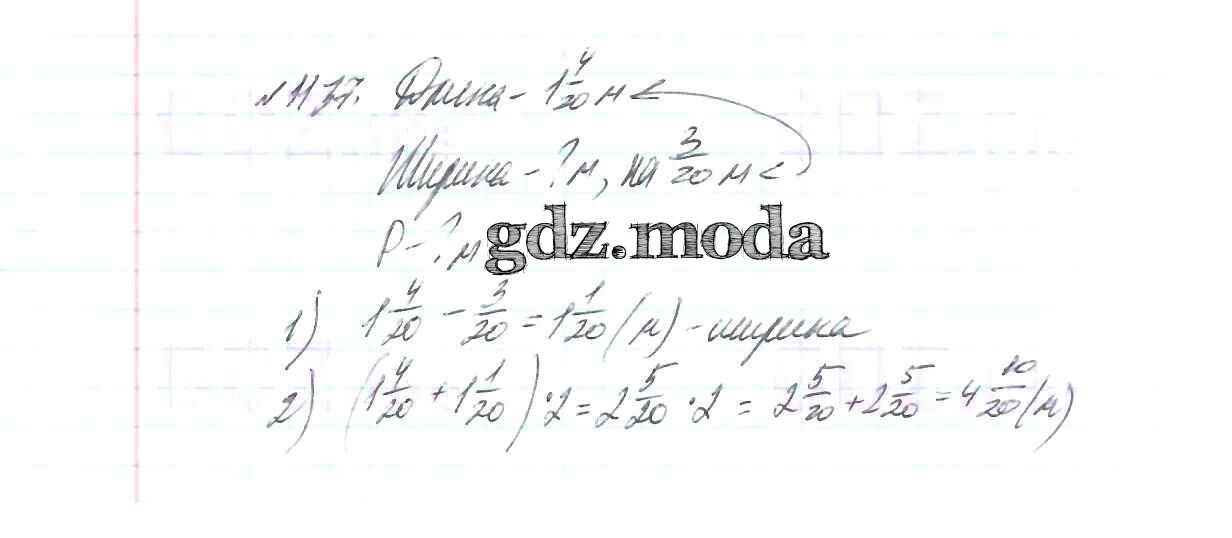 № 1137. Длина - 1 4/20 м <
Ширина - ? м, на 3/20 м <
P - ? м
gdz.moda
1) 1 4/20 - 3/20 = 1 1/20 (м) - ширина
2) (1 4/20 + 1 1/20) · 2 = 2 5/20 · 2 = 2 5/20 + 2 5/20 = 4 10/20 (м)